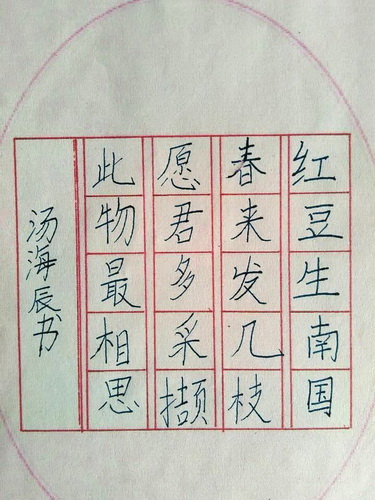 红豆生南国
春来发几枝
愿君多采撷
此物最相思
汤海辰书